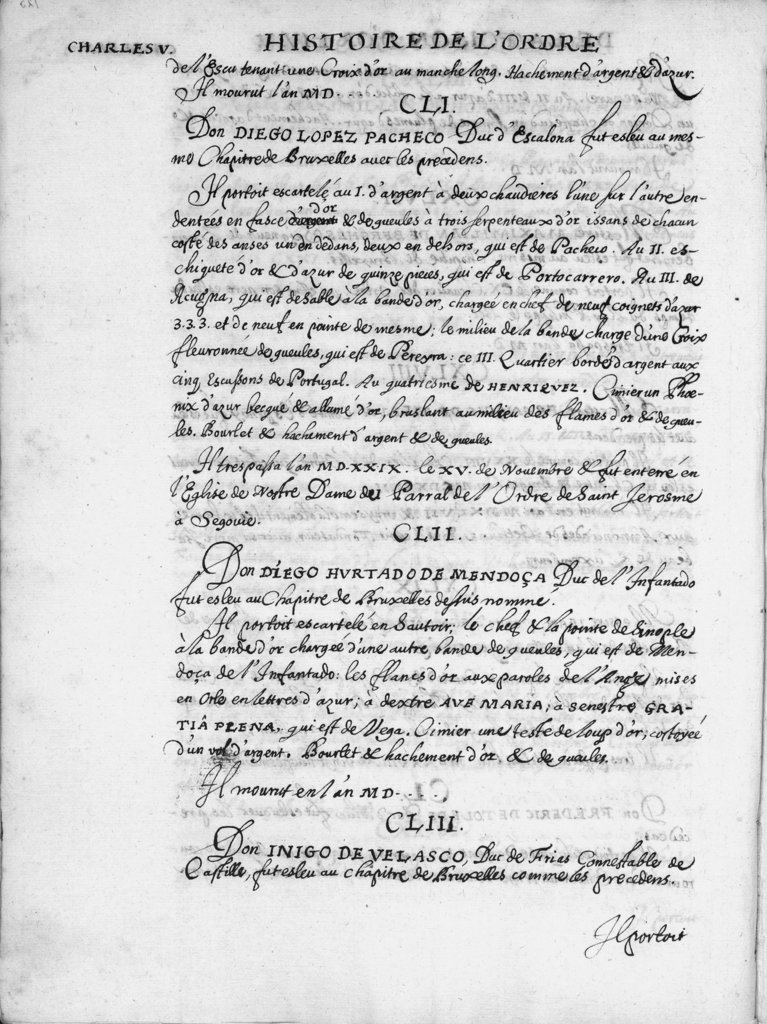 CHARLES V. HISTOIRE DE L'ORDRE
de l'Escu tenant une Croix d'or au manche long. Hachement d'argent & d'azur.
Il mourut l'an MD. . . .
CLI.
Don DIEGO LOPEZ PACHECO Duc d'Escalona fut esleu au mes-
me Chapitre de Bruxelles avec les precedens.
Il portoit escartelé au I. d'argent à deux chaudieres l'une sur l'autre en-
dentées en fasce d'or & de gueules à trois serpenteaux d'or issans de chacun
costé des anses un en dedans, deux en dehors, qui est de Pacheco. Au II. es-
chiqueté d'or & d'azur de quinze pieces, qui est de Portocarrero. Au III. de
Acugna, qui est de sable à la bande d'or, chargée en chef de neuf coignets d'azur
3.3.3. et de neuf en pointe de mesme; le milieu de la bande charge d'une Croix
fleuronnée de gueules, qui est de Pereyra: ce III. Quartier bordé d'argent aux
cinq Escussons de Portugal. Au quatriesme de HENRIQUEZ. Cimier un Phoe-
nix d'azur becqué & allumé d'or, bruslant au milieu des flames d'or & de gueu-
les. Bourlet & hachament d'argent & de gueules.
Il trespassa l'an MD.XXIX. le XV. de Novembre & fut enterré en
l'Eglise de Nostre Dame del Parral de l'Ordre de Saint Jerosme
à Segovie.
CLII.
Don DIEGO HVRTADO DE MENDOÇA Duc de l'Infantado
fut esleu au Chapitre de Bruxelles dessus nommé.
Il portoit escartelé en Sautoir; le chef & la pointe de Sinople
à la bande d'or chargée d'une autre bande de gueules, qui est de Men-
doça de l'Infantado: les flancs d'or aux paroles de l'Ange mises
en Orle en lettres d'azur; à dextre AVE MARIA; à senestre GRA-
TIÂ PLENA, qui est de Vega. Cimier une teste de loup d'or, costoyée
d'un vol d'argent. Bourlet & hachement d'or & de gueules.
Il mourut en l'an MD. . . .
CLIII.
Don INIGO DE VELASCO, Duc de Frias Connestable de
Castille, fut esleu au Chapitre de Bruxelles comme les precedens.
Il portoit